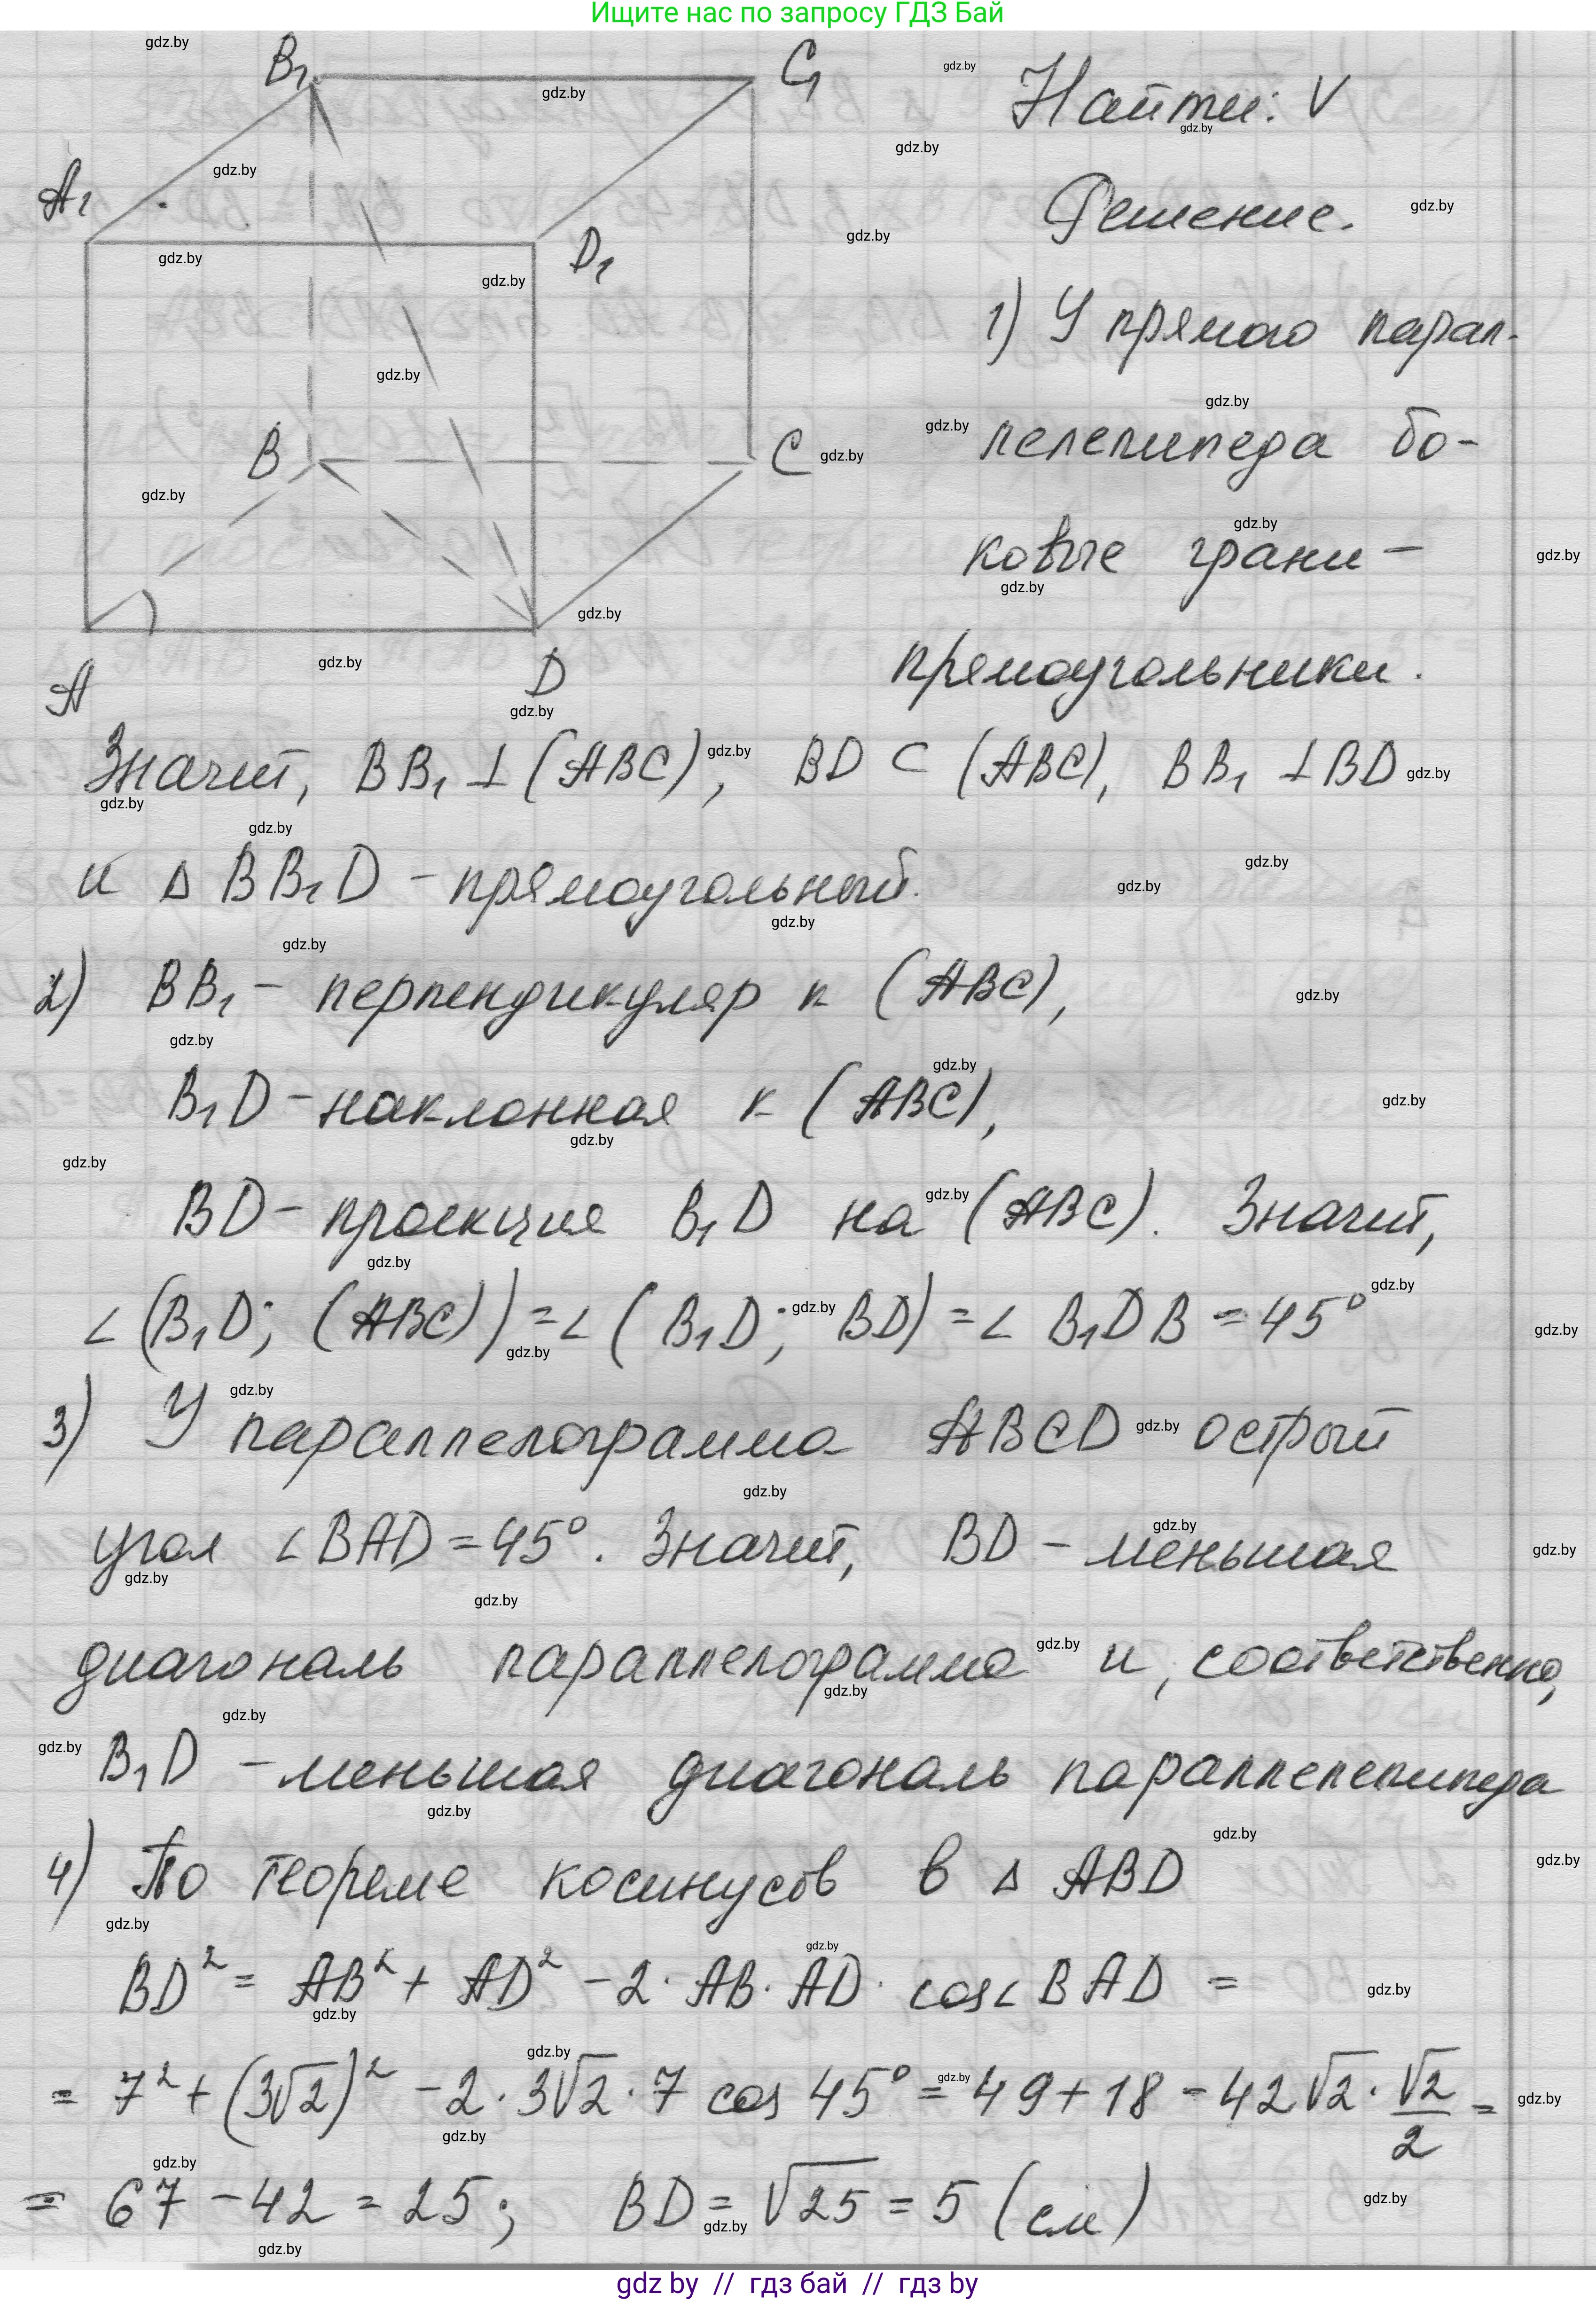 Ищите нас по запросу ГДЗ Бай
B₁
C₁
A₁
D₁
B
C
A
D
Найти: V
Решение.
1) У прямого парал-
лелепипеда бо-
ковые грани –
прямоугольники.
Значит, BB₁ ⊥ (ABC), BD ⊂ (ABC), BB₁ ⊥ BD
и △ BB₁D – прямоугольный.
2) BB₁ – перпендикуляр к (ABC),
B₁D – наклонная к (ABC),
BD – проекция B₁D на (ABC). Значит,
∠(B₁D; (ABC)) = ∠(B₁D; BD) = ∠ B₁DB = 45°
3) У параллелограмма ABCD острый
угол ∠BAD = 45°. Значит, BD – меньшая
диагональ параллелограмма и, соответственно,
B₁D – меньшая диагональ параллелепипеда
4) По теореме косинусов в △ ABD
BD² = AB² + AD² – 2 · AB · AD · cos∠BAD =
= 7² + (3√2)² – 2 · 3√2 · 7 cos 45° = 49 + 18 – 42√2 · √2/2 =
= 67 – 42 = 25; BD = √25 = 5 (см)
gdz by // гдз бай // гдз by